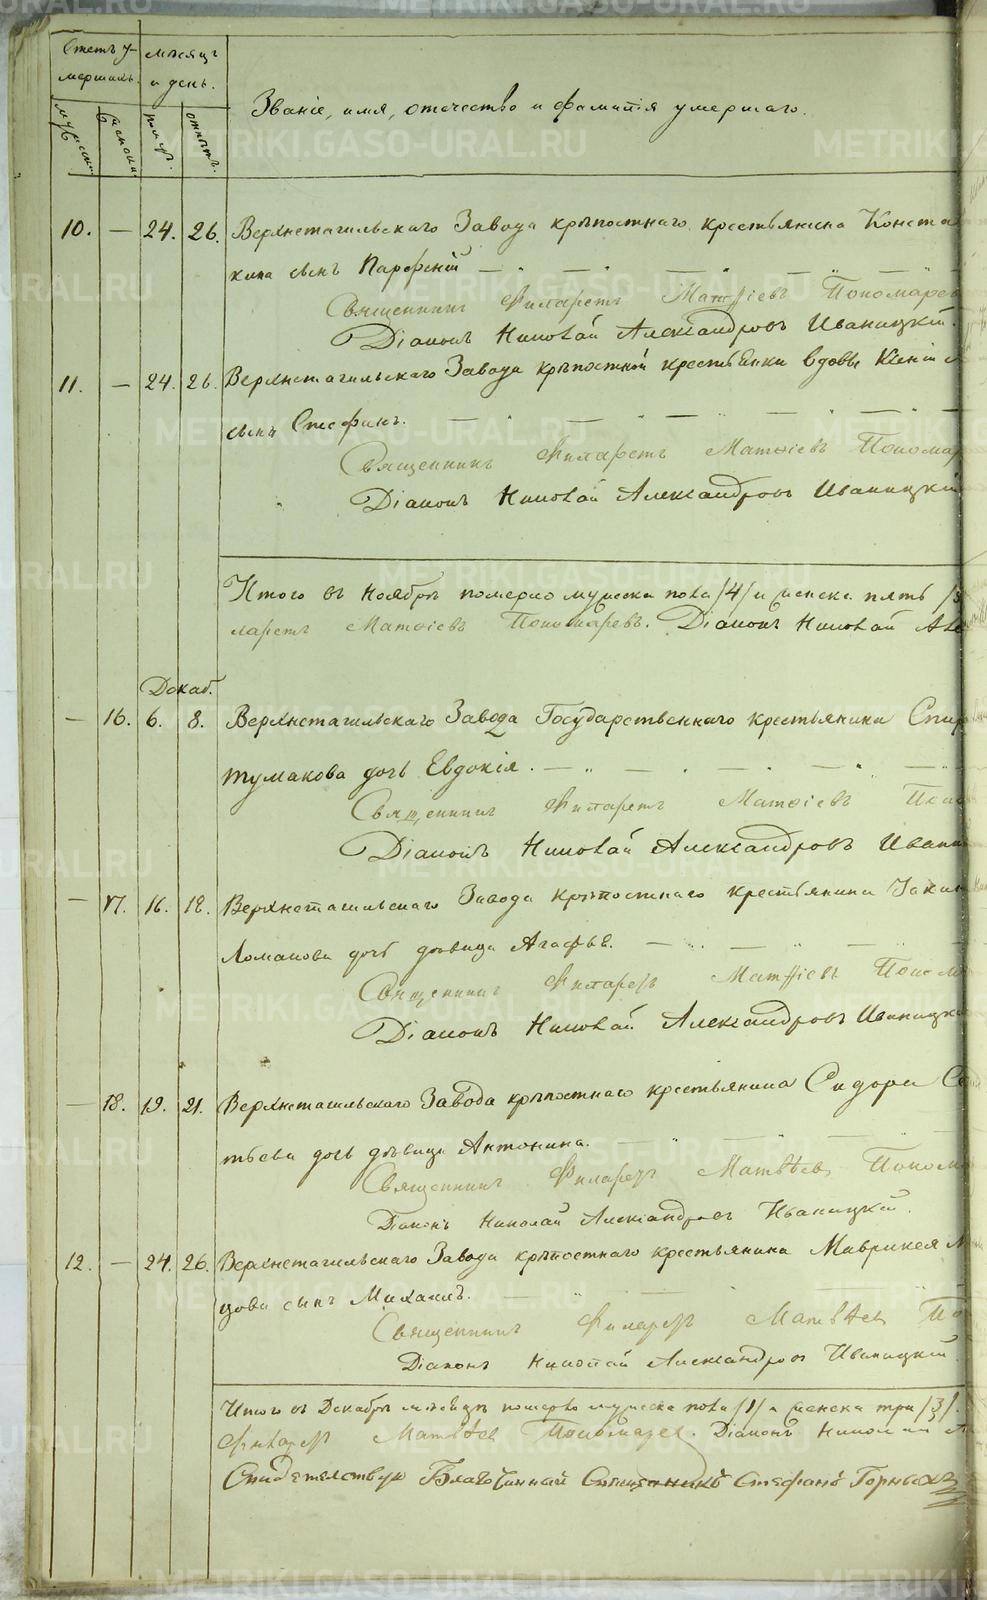 Счетъ у-
мершихъ.
мѣсяцъ
и день.
Званіе, имя, отечество и фамилія умершаго.
мужеска
женска
10. — 24. 26. Верхнетагильскаго Завода крѣпостнаго крестьянина Конста
кина сынъ Парфеній — " —
Священникъ Филаретъ Матѳіевъ Пономарев
Діаконъ Николай Александровъ Иваницкій.
11. — 24. 26. Верхнетагильскаго Завода крѣпостной крестьянки вдовы Ксеніи
сынъ Стефанъ. — " —
Священникъ Филаретъ Матѳіевъ Понома
Діаконъ Николай Александровъ Иваницкій
Итого въ Ноябрѣ померло мужеска пола /4/ и женска пять /5
ларетъ Матѳіевъ Пономаревъ. Діаконъ Николай Але
Декаб.
— 16. 6. 8. Верхнетагильскаго Завода Государственнаго крестьянина Спир
тумакова дочь Евдокія. — " —
Священникъ Филаретъ Матѳіевъ
Діаконъ Николай Александровъ Ивани
— 17. 16. 18. Верхнетагильскаго Завода крѣпостнаго крестьянина
Ломанова дочь дѣвица Агафья. — " —
Священникъ Филаретъ Матѳіевъ Поном
Діаконъ Николай Александровъ Иваницкі
— 18. 19. 21. Верхнетагильскаго Завода крѣпостнаго крестьянина Сидора Са
тѣева дочь дѣвица Антонина. — " —
Священникъ Филаретъ Матвѣевъ Поном
Діаконъ Николай Александровъ Иваницкій.
12. — 24. 26. Верхнетагильскаго Завода крѣпостнаго крестьянина Маврикея
цова сынъ Михаилъ. — " —
Священникъ Филаретъ Матвѣевъ По
Діаконъ Николай Александровъ Иваницкій.
Итого въ Декабрѣ мѣсяцѣ померло мужеска пола /1/ и женска три /3/.
Филаретъ Матвѣевъ Пономаревъ. Діаконъ Николай
Свидетелствую Благочинный Священникъ Стефанъ Горныхъ
METRIKI.GASO-URAL.RU